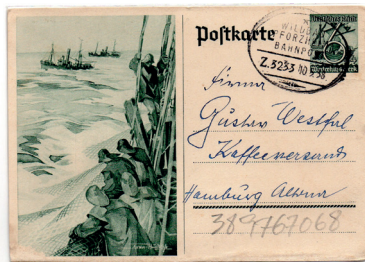 Postkarte
WILDB
PFORZH
BAHNPO
Z.3233 10
Firma
Gustav Westfal
Kaffeeversand
Hamburg Altona
389767068